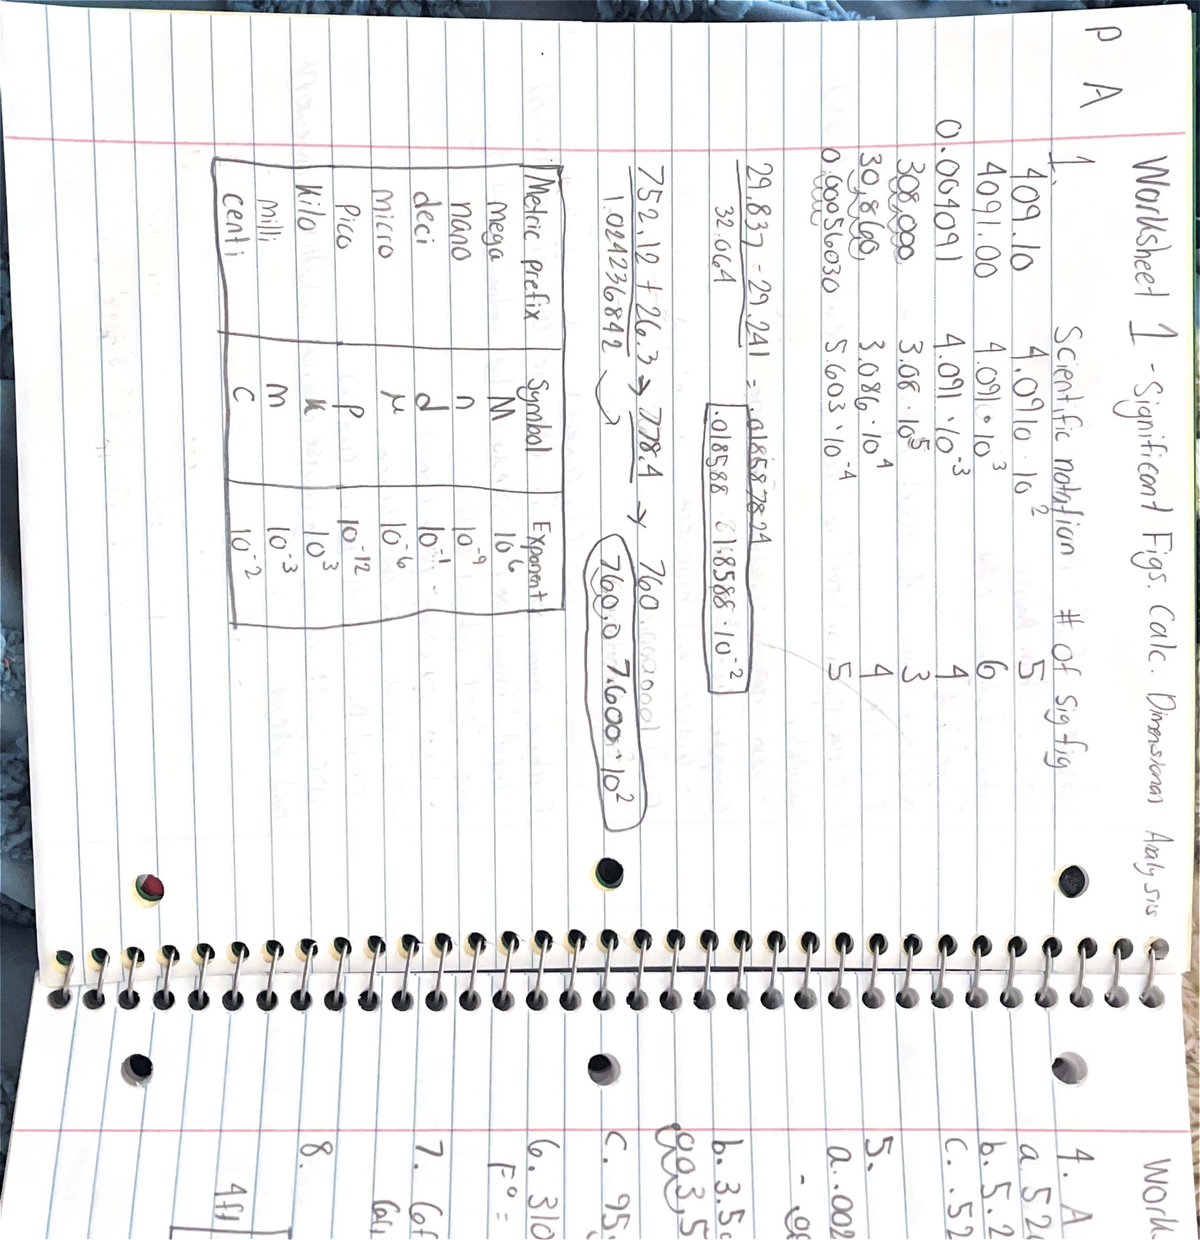 P A
Worksheet 1 - Significant Figs. Calc. Dimensional Analysis
1. Scientific notation # of sig fig
409.10 4.0910 · 10² 5
4091.00 4.091 · 10³ 6
0.004091 4.091 · 10⁻³ 4
308,000 3.08 · 10⁵ 3
30,860, 3.086 · 10⁴ 4
0.00056030 5.603 · 10⁻⁴ 5
29.837 - 29.241 = .01858782
32.064 .018588 1.8588 · 10⁻²
752.12 + 26.3 → 778.4 → 760
1.024236842 760.0 7.600 · 10²
Metric prefix Symbol Exponent
mega M 10⁶
nano n 10⁻⁹
deci d 10⁻¹
micro μ 10⁻⁶
Pico P 10⁻¹²
Kilo K 10³
milli m 10⁻³
centi c 10⁻²
Work
4. A
a. 52
b. 5.2
c. .52
5.
a. .002
b. 3.5
3,5
c. 95.
6. 310
F° =
7. 6f
8.
4ft